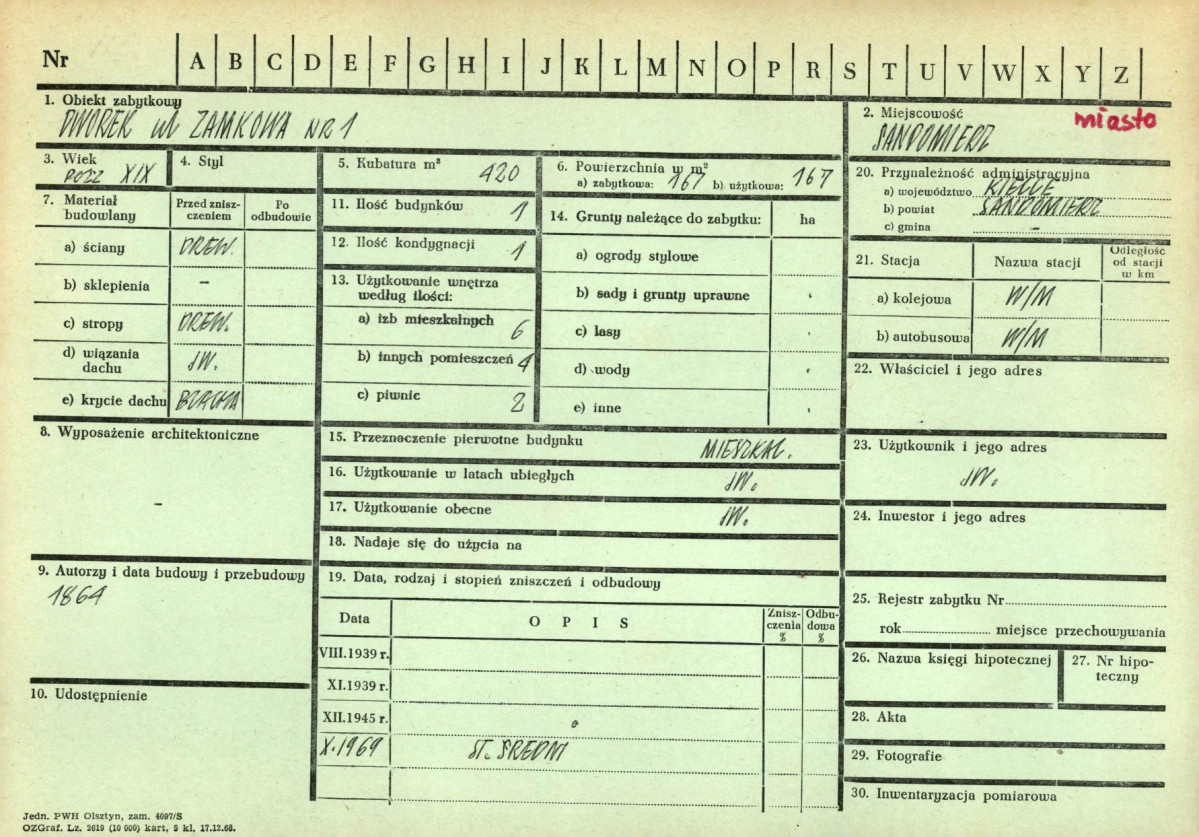 Nr A B C D E F G H I J K L M N O P R S T U V W X Y Z
1. Obiekt zabytkowy
DWOREK ul ZAMKOWA NR 1
2. Miejscowość
miasto
SANDOMIERZ
3. Wiek
POCZ XIX
4. Styl
5. Kubatura m³ 420
6. Powierzchnia w m²
a) zabytkowa: 167 b) użytkowa: 167
7. Materiał budowlany
Przed zniszczeniem
Po odbudowie
a) ściany DREW.
b) sklepienia –
c) stropy DREW.
d) wiązania dachu JW.
e) krycie dachu BLACHA
8. Wyposażenie architektoniczne
–
9. Autorzy i data budowy i przebudowy
1864
10. Udostępnienie
11. Ilość budynków 1
12. Ilość kondygnacji 1
13. Użytkowanie wnętrza
według ilości:
a) izb mieszkalnych 6
b) innych pomieszczeń 4
c) piwnic 2
14. Grunty należące do zabytku: ha
a) ogrody stylowe
b) sady i grunty uprawne
c) lasy
d) wody
e) inne
15. Przeznaczenie pierwotne budynku MIESZKAL.
16. Użytkowanie w latach ubiegłych JW.
17. Użytkowanie obecne JW.
18. Nadaje się do użycia na
19. Data, rodzaj i stopień zniszczeń i odbudowy
Data OPIS Zniszczenia % Odbudowa %
VIII.1939 r.
XI.1939 r.
XII.1945 r.
X.1969 ST. ŚREDNI
20. Przynależność administracyjna
a) województwo KIELCE
b) powiat SANDOMIERZ
c) gmina –
21. Stacja Nazwa stacji Odległość od stacji w km
a) kolejowa W/M
b) autobusowa W/M
22. Właściciel i jego adres
23. Użytkownik i jego adres
JW.
24. Inwestor i jego adres
25. Rejestr zabytku Nr
rok miejsce przechowywania
26. Nazwa księgi hipotecznej
27. Nr hipoteczny
28. Akta
29. Fotografie
30. Inwentaryzacja pomiarowa
Jedn. PWH Olsztyn, zam. 4097/S
OZGraf. Lz. 2619 (10 000) kart, 5 kl, 17.12.68.